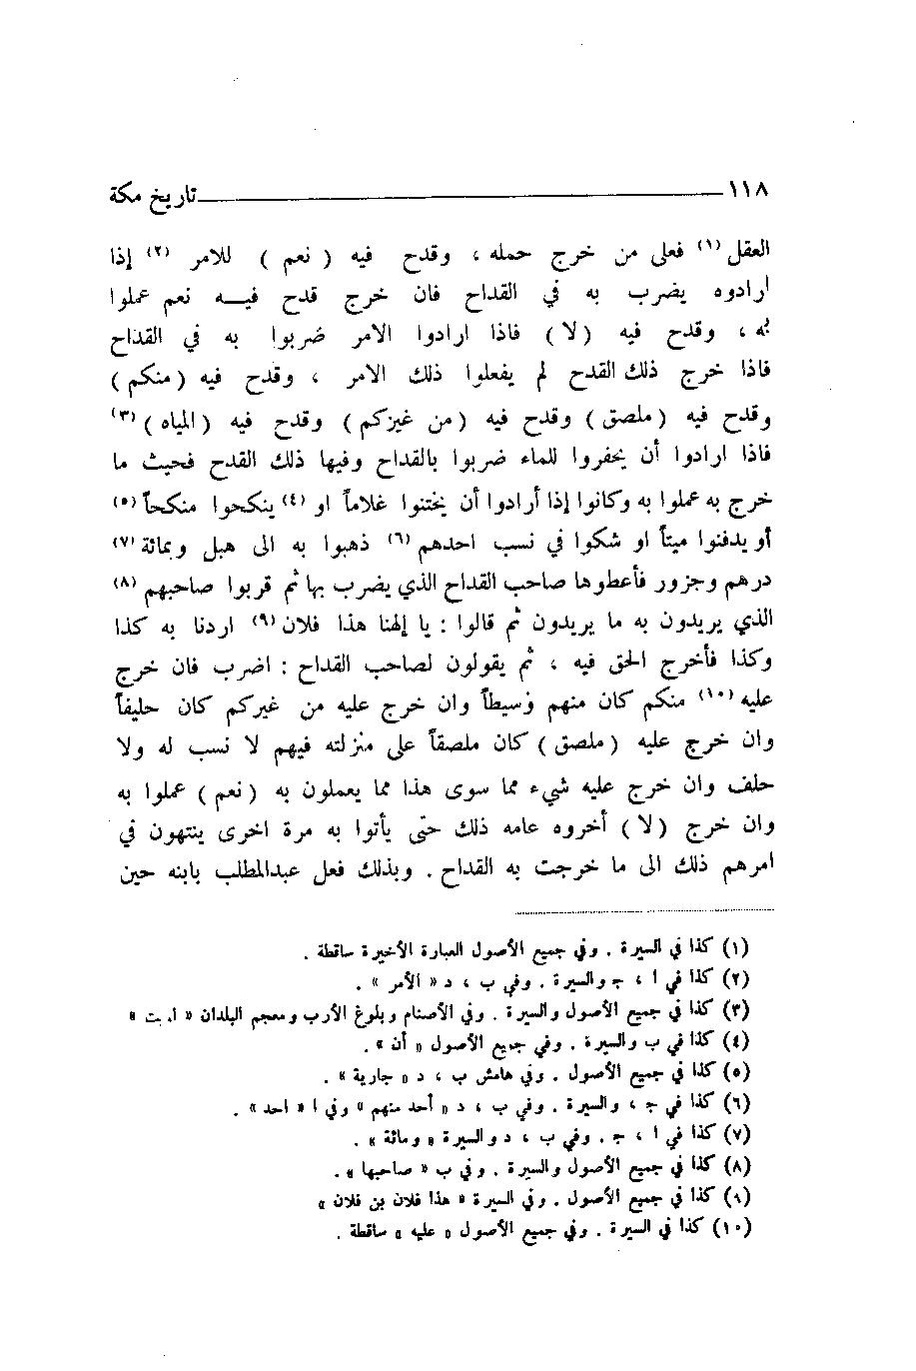 ١١٨ تاريخ مكة
العقل (١) فعلى من خرج حمله ، وقدح فيه ( نعم ) للامر (٢) إذا
ارادوه يضرب به في القداح فان خرج قدح فيــه نعم عملوا
به ، وقدح فيه ( لا ) فاذا ارادوا الامر ضربوا به في القداح
فاذا خرج ذلك القدح لم يفعلوا ذلك الامر ، وقدح فيه ( منكم )
وقدح فيه ( ملصق ) وقدح فيه ( من غيركم ) وقدح فيه ( المياه ) (٣)
فاذا ارادوا أن يحفروا للماء ضربوا بالقداح وفيها ذلك القدح فحيث ما
خرج به عملوا به وكانوا إذا أرادوا أن يختنوا غلاماً او (٤) ينكحوا منكحاً (٥)
أو يدفنوا ميتاً او شكوا في نسب احدهم (٦) ذهبوا به الى هبل وبمائة (٧)
درهم وجزور فأعطوها صاحب القداح الذي يضرب بها ثم قربوا صاحبهم (٨)
الذي يريدون به ما يريدون ثم قالوا : يا إلهنا هذا فلان (٩) اردنا به كذا
وكذا فأخرج الحق فيه ، ثم يقولون لصاحب القداح : اضرب فان خرج
عليه (١٠) منكم كان منهم وسيطاً وان خرج عليه من غيركم كان حليفاً
وان خرج عليه ( ملصق ) كان ملصقاً على منزلته فيهم لا نسب له ولا
حلف وان خرج عليه شيء مما سوى هذا مما يعملون به ( نعم ) عملوا به
وان خرج ( لا ) أخروه عامه ذلك حتى يأتوا به مرة اخرى ينتهون في
امرهم ذلك الى ما خرجت به القداح . وبذلك فعل عبدالمطلب بابنه حين
(١) كذا في السيرة . وفي جميع الأصول العبارة الأخيرة ساقطة .
(٢) كذا في ا ، ج والسيرة . وفي ب ، د « الأمر » .
(٣) كذا في جميع الأصول والسيرة . وفي الأصنام وبلوغ الأرب ومعجم البلدان
(٤) كذا في ب والسيرة . وفي جميع الأصول « أن » .
(٥) كذا في جميع الأصول . وفي هامش ب ، د « جارية » .
(٦) كذا في ج ، والسيرة . وفي ب ، د « أحد منهم » وفي ا « احد » .
(٧) كذا في ا ، ج . وفي ب ، د والسيرة « ومائة » .
(٨) كذا في جميع الأصول والسيرة . وفي ب « صاحبها » .
(٩) كذا في جميع الأصول . وفي السيرة « هذا فلان بن فلان »
(١٠) كذا في السيرة . وفي جميع الأصول « عليه » ساقطة .